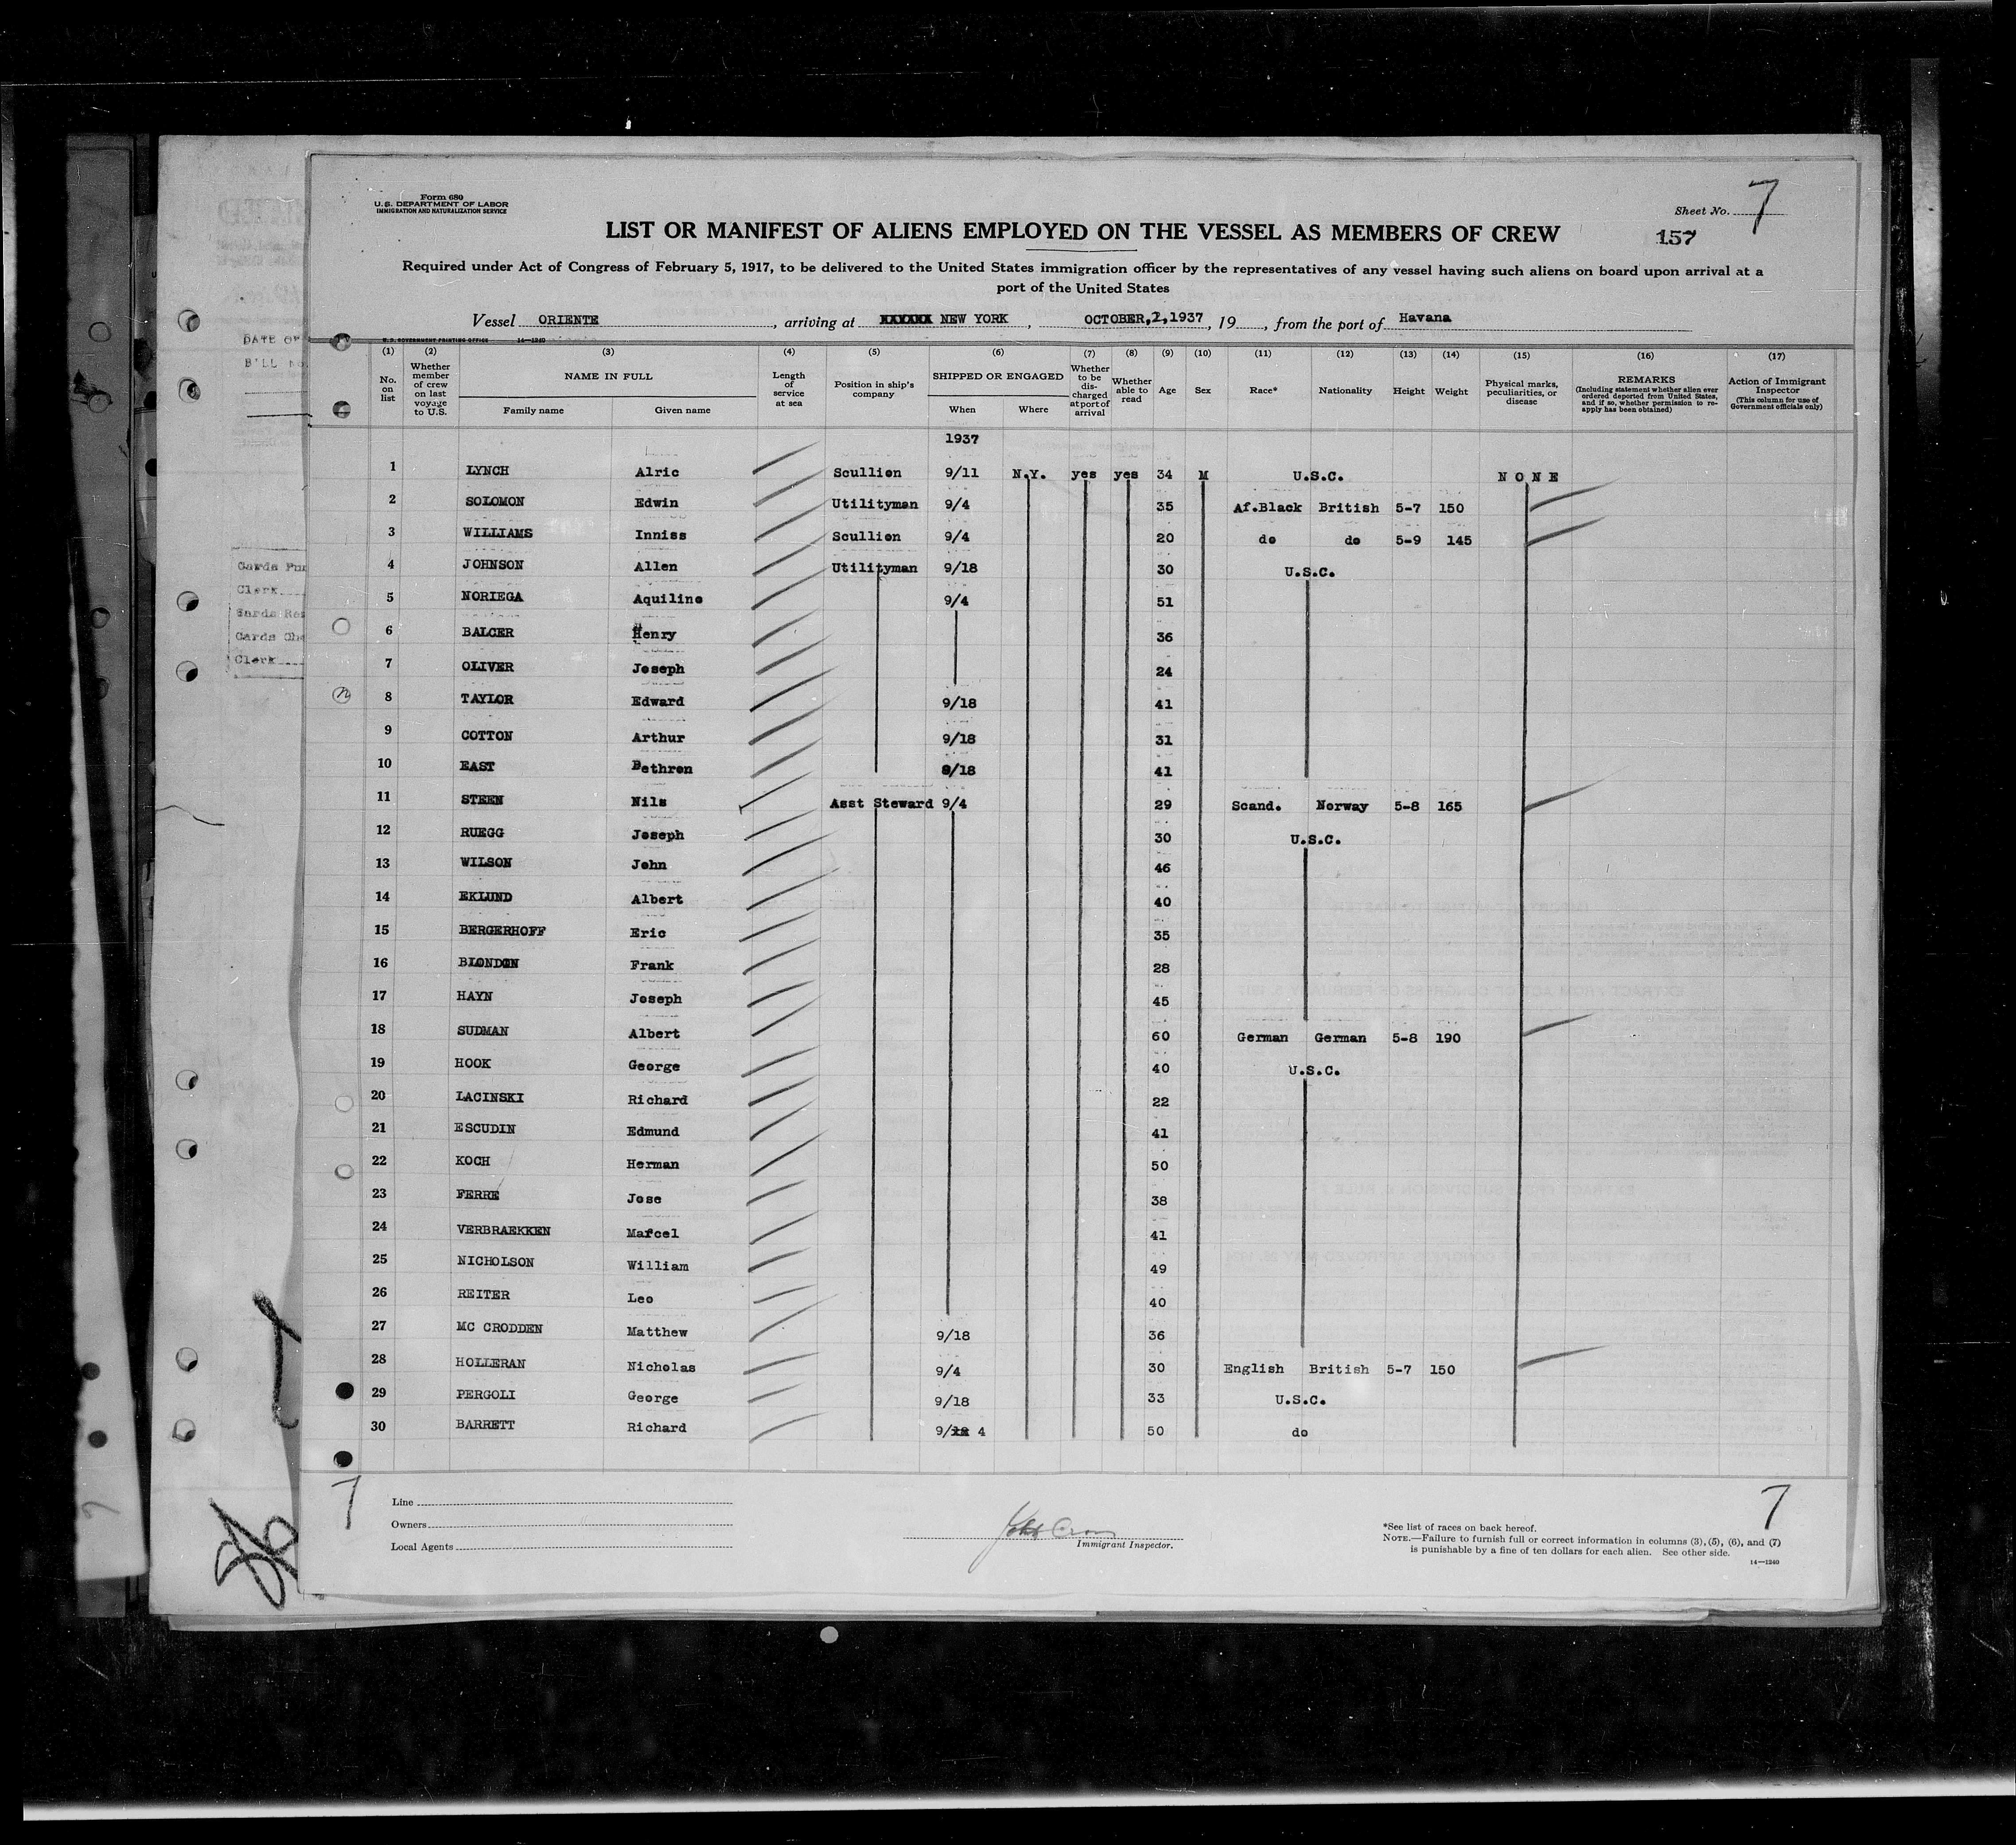 Form 680
U.S. DEPARTMENT OF LABOR
IMMIGRATION AND NATURALIZATION SERVICE
Sheet No. 7
LIST OR MANIFEST OF ALIENS EMPLOYED ON THE VESSEL AS MEMBERS OF CREW
157
Required under Act of Congress of February 5, 1917, to be delivered to the United States immigration officer by the representatives of any vessel having such aliens on board upon arrival at a
port of the United States
Vessel ORIENTE, arriving at NEW YORK, OCTOBER,2,1937, 19, from the port of Havana
U. S. GOVERNMENT PRINTING OFFICE 14—1240
(1) (2) (3) (4) (5) (6) (7) (8) (9) (10) (11) (12) (13) (14) (15) (16) (17)
No. on list
Whether member of crew on last voyage to U.S.
NAME IN FULL
Family name Given name
Length of service at sea
Position in ship's company
SHIPPED OR ENGAGED
When Where
Whether to be discharged at port of arrival
Whether able to read
Age
Sex
Race*
Nationality
Height
Weight
Physical marks, peculiarities, or disease
REMARKS
(Including statement whether alien ever ordered deported from United States, and if so, whether permission to re-apply has been obtained)
Action of Immigrant Inspector
(This column for use of Government officials only)
1937
1 LYNCH Alric Scullion 9/11 N.Y. yes yes 34 M U.S.C. NONE
2 SOLOMON Edwin Utilityman 9/4 35 Af.Black British 5-7 150
3 WILLIAMS Inniss Scullion 9/4 20 do do 5-9 145
4 JOHNSON Allen Utilityman 9/18 30 U.S.C.
5 NORIEGA Aquilino 9/4 51
6 BALCER Henry 36
7 OLIVER Joseph 24
8 TAYLOR Edward 9/18 41
9 COTTON Arthur 9/18 31
10 EAST Bethren 9/18 41
11 STEEN Nils Asst Steward 9/4 29 Scand. Norway 5-8 165
12 RUEGG Joseph 30 U.S.C.
13 WILSON John 46
14 EKLUND Albert 40
15 BERGERHOFF Eric 35
16 BLONDIN Frank 28
17 HAYN Joseph 45
18 SUDMAN Albert 60 German German 5-8 190
19 HOOK George 40 U.S.C.
20 LACINSKI Richard 22
21 ESCUDIN Edmund 41
22 KOCH Herman 50
23 FERRE Jose 38
24 VERBRAEKKEN Marcel 41
25 NICHOLSON William 49
26 REITER Leo 40
27 MC CRODDEN Matthew 9/18 36
28 HOLLERAN Nicholas 9/4 30 English British 5-7 150
29 PERGOLI George 9/18 33 U.S.C.
30 BARRETT Richard 9/18 4 50 do
7
7
Line
Owners
Local Agents
Immigrant Inspector.
*See list of races on back hereof.
NOTE.—Failure to furnish full or correct information in columns (3), (5), (6), and (7)
is punishable by a fine of ten dollars for each alien. See other side.
14—1240
DATE OF
Clerk
Clerk